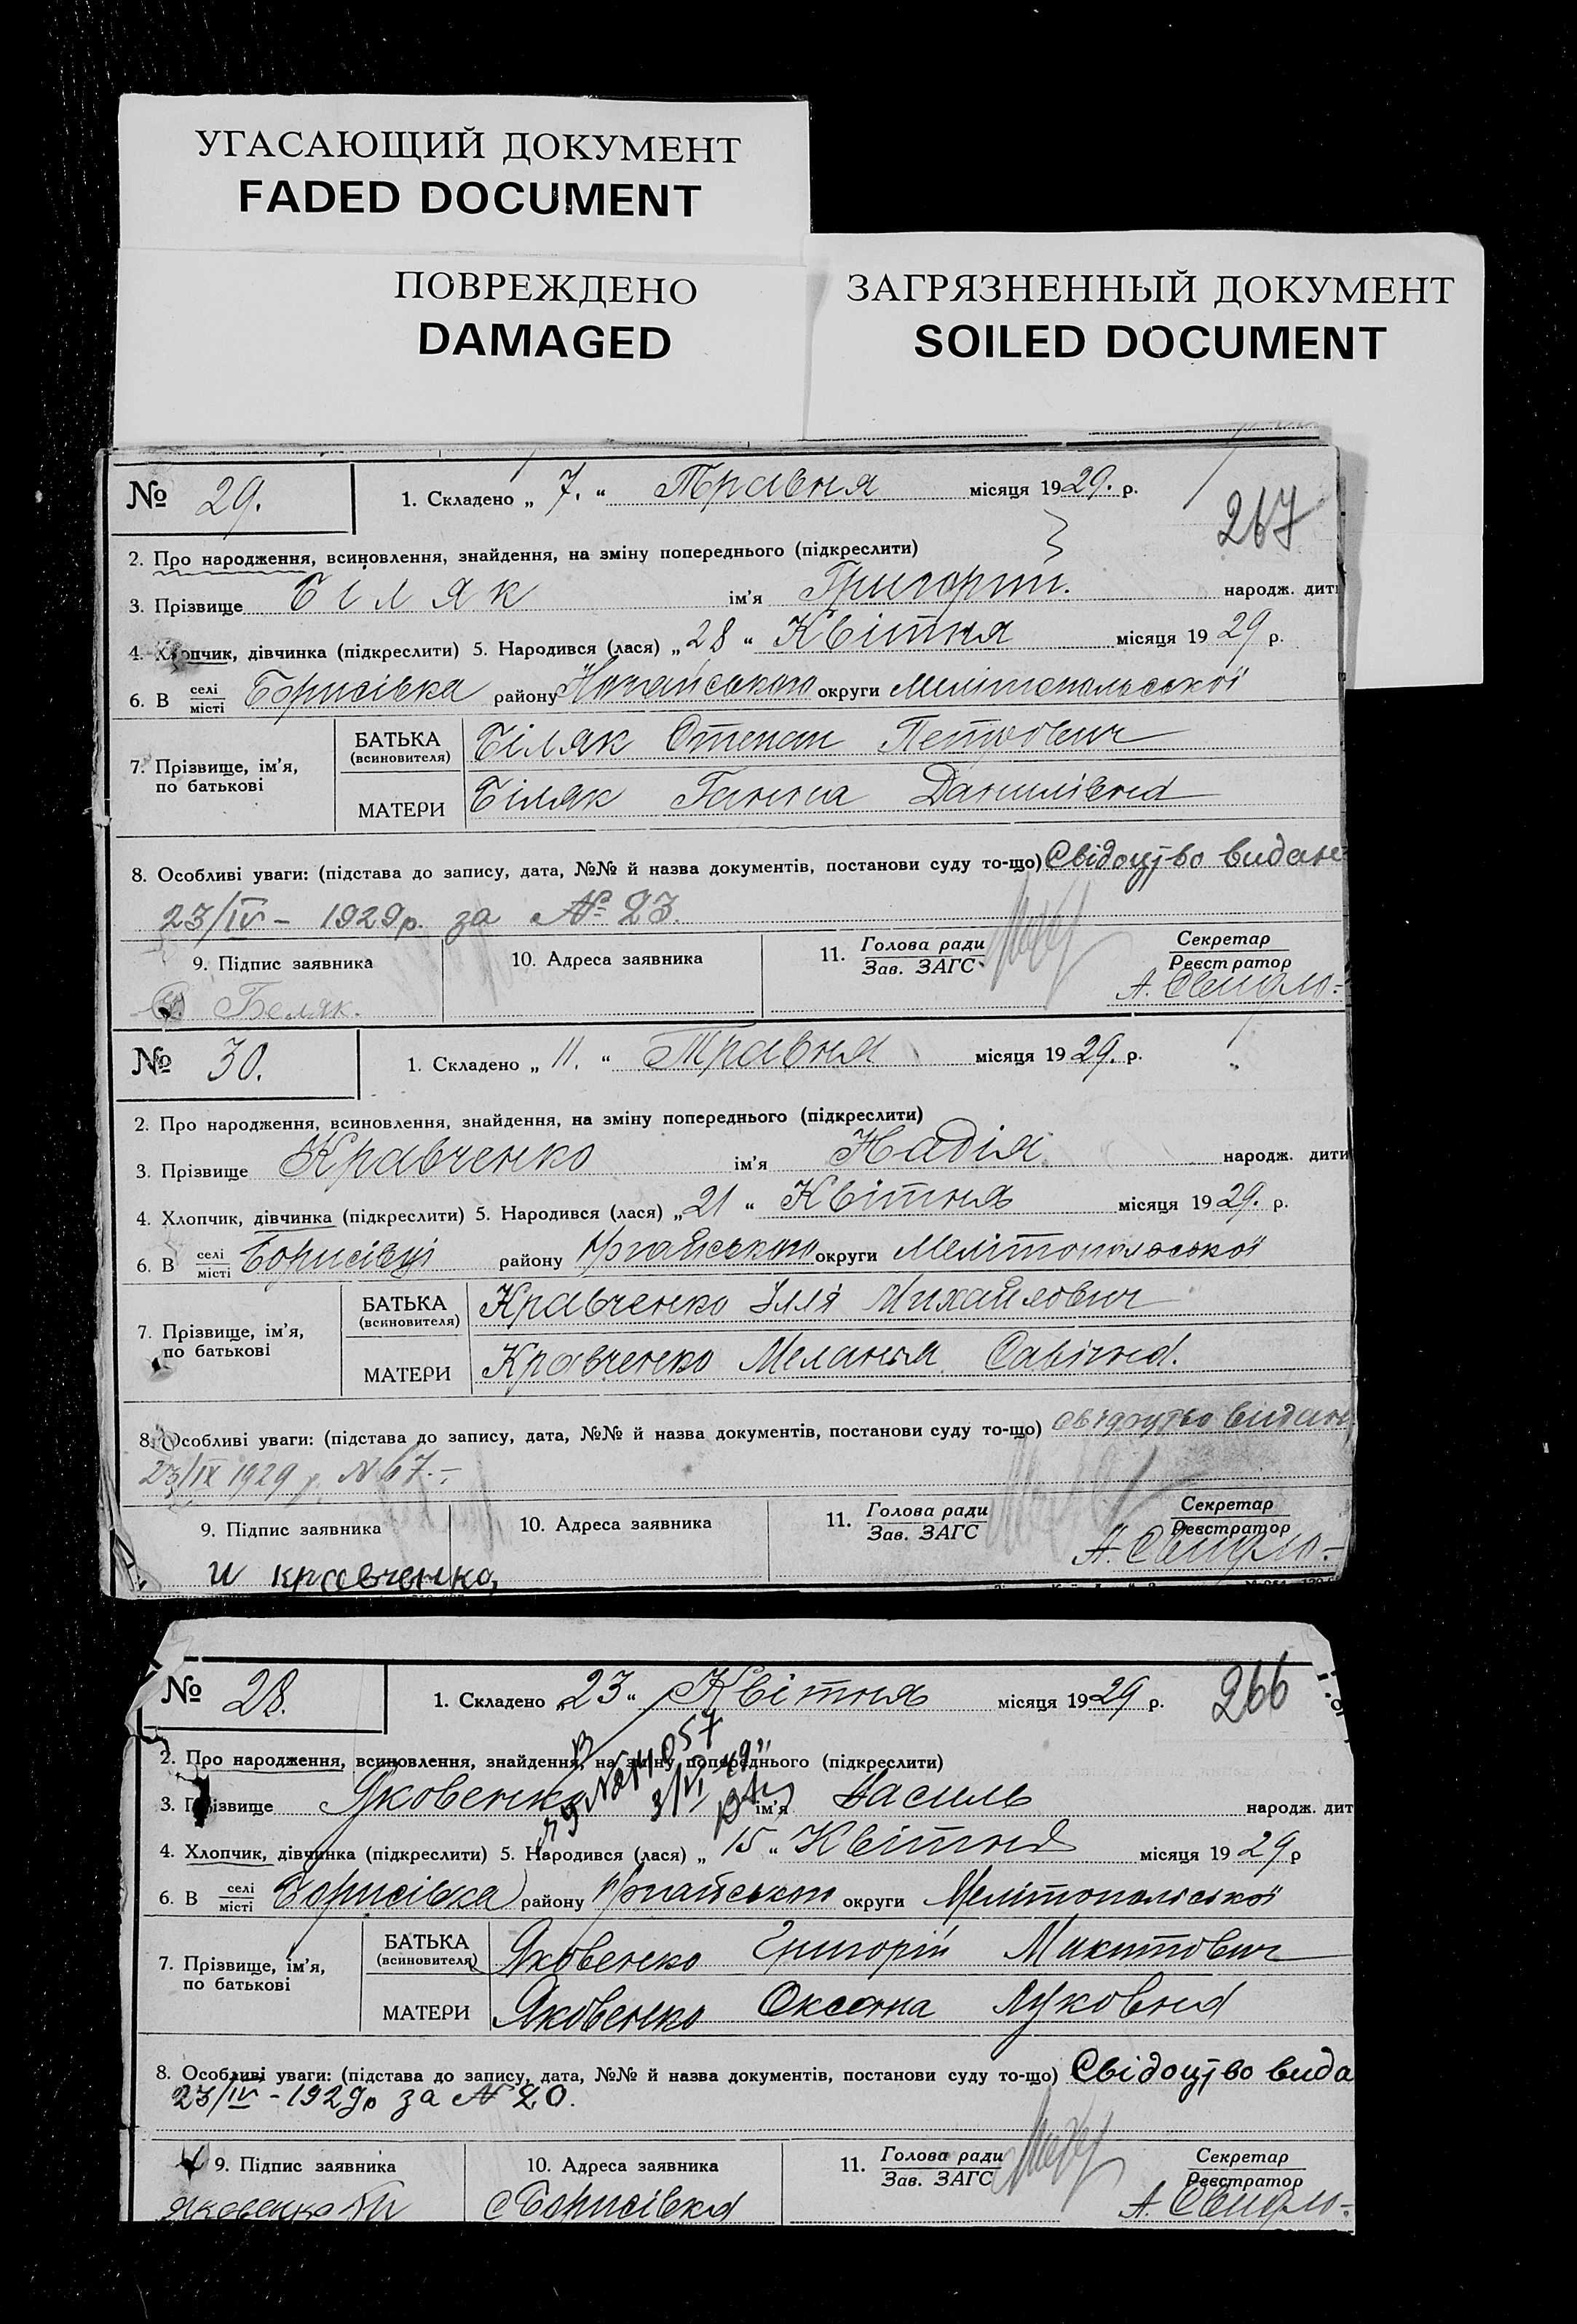 УГАСАЮЩИЙ ДОКУМЕНТ
FADED DOCUMENT
ПОВРЕЖДЕНО
DAMAGED
ЗАГРЯЗНЕННЫЙ ДОКУМЕНТ
SOILED DOCUMENT
№ 29. 1. Складено „ 7. “ Травня місяця 1929. р.
267
2. Про народження, всиновлення, знайдення, на зміну попереднього (підкреслити)
3. Прізвище Біляк ім’я Григорій. народж. дит
4. Хлопчик, дівчинка (підкреслити) 5. Народився (лася) „ 28 “ Квітня місяця 1929 р.
6. В селі місті Борисівка району Ногайського округи Мелітопольської
7. Прізвище, ім’я, по батькові
БАТЬКА (всиновителя) Біляк Степан Петрович
МАТЕРИ Біляк Ганна Данилівна
8. Особливі уваги: (підстава до запису, дата, №№ й назва документів, постанови суду то-що) Свідоцтво видан
23/IV – 1929р. за № 23.
9. Підпис заявника 10. Адреса заявника 11. Голова ради Зав. ЗАГС Секретар Реєстратор
Беляк.
№ 30. 1. Складено „ 11. “ Травня місяця 1929. р.
2. Про народження, всиновлення, знайдення, на зміну попереднього (підкреслити)
3. Прізвище Кравченко ім’я Надія народж. дити
4. Хлопчик, дівчинка (підкреслити) 5. Народився (лася) „ 21 “ Квітня місяця 1929. р.
6. В селі місті Борисівці району Ногайського округи Мелітопольської
7. Прізвище, ім’я, по батькові
БАТЬКА (всиновителя) Кравченко Ілля Михайлович
МАТЕРИ Кравченко Меланія Савівна.
8. Особливі уваги: (підстава до запису, дата, №№ й назва документів, постанови суду то-що) Свідоцтво видан
23/IX 1929 р. N 67.
9. Підпис заявника 10. Адреса заявника 11. Голова ради Зав. ЗАГС Секретар Реєстратор
и кравченко,
№ 28. 1. Складено „ 23 “ Квітня місяця 1929 р.
266
2. Про народження, всиновлення, знайдення, на зміну попереднього (підкреслити)
3. Прізвище Яковенко ім’я Василь народж. дит
4. Хлопчик, дівчинка (підкреслити) 5. Народився (лася) „ 15 “ Квітня місяця 1929 р
6. В селі місті Борисівка району Ногайського округи Мелітопольської
7. Прізвище, ім’я, по батькові
БАТЬКА (всиновителя) Яковенко Григорій Микитович
МАТЕРИ Яковенко Оксана Луковна
8. Особливі уваги: (підстава до запису, дата, №№ й назва документів, постанови суду то-що) Свідоцтво вида
23/IV – 1929р за № 20.
9. Підпис заявника 10. Адреса заявника 11. Голова ради Зав. ЗАГС Секретар Реєстратор
Яковенко с Борисівка